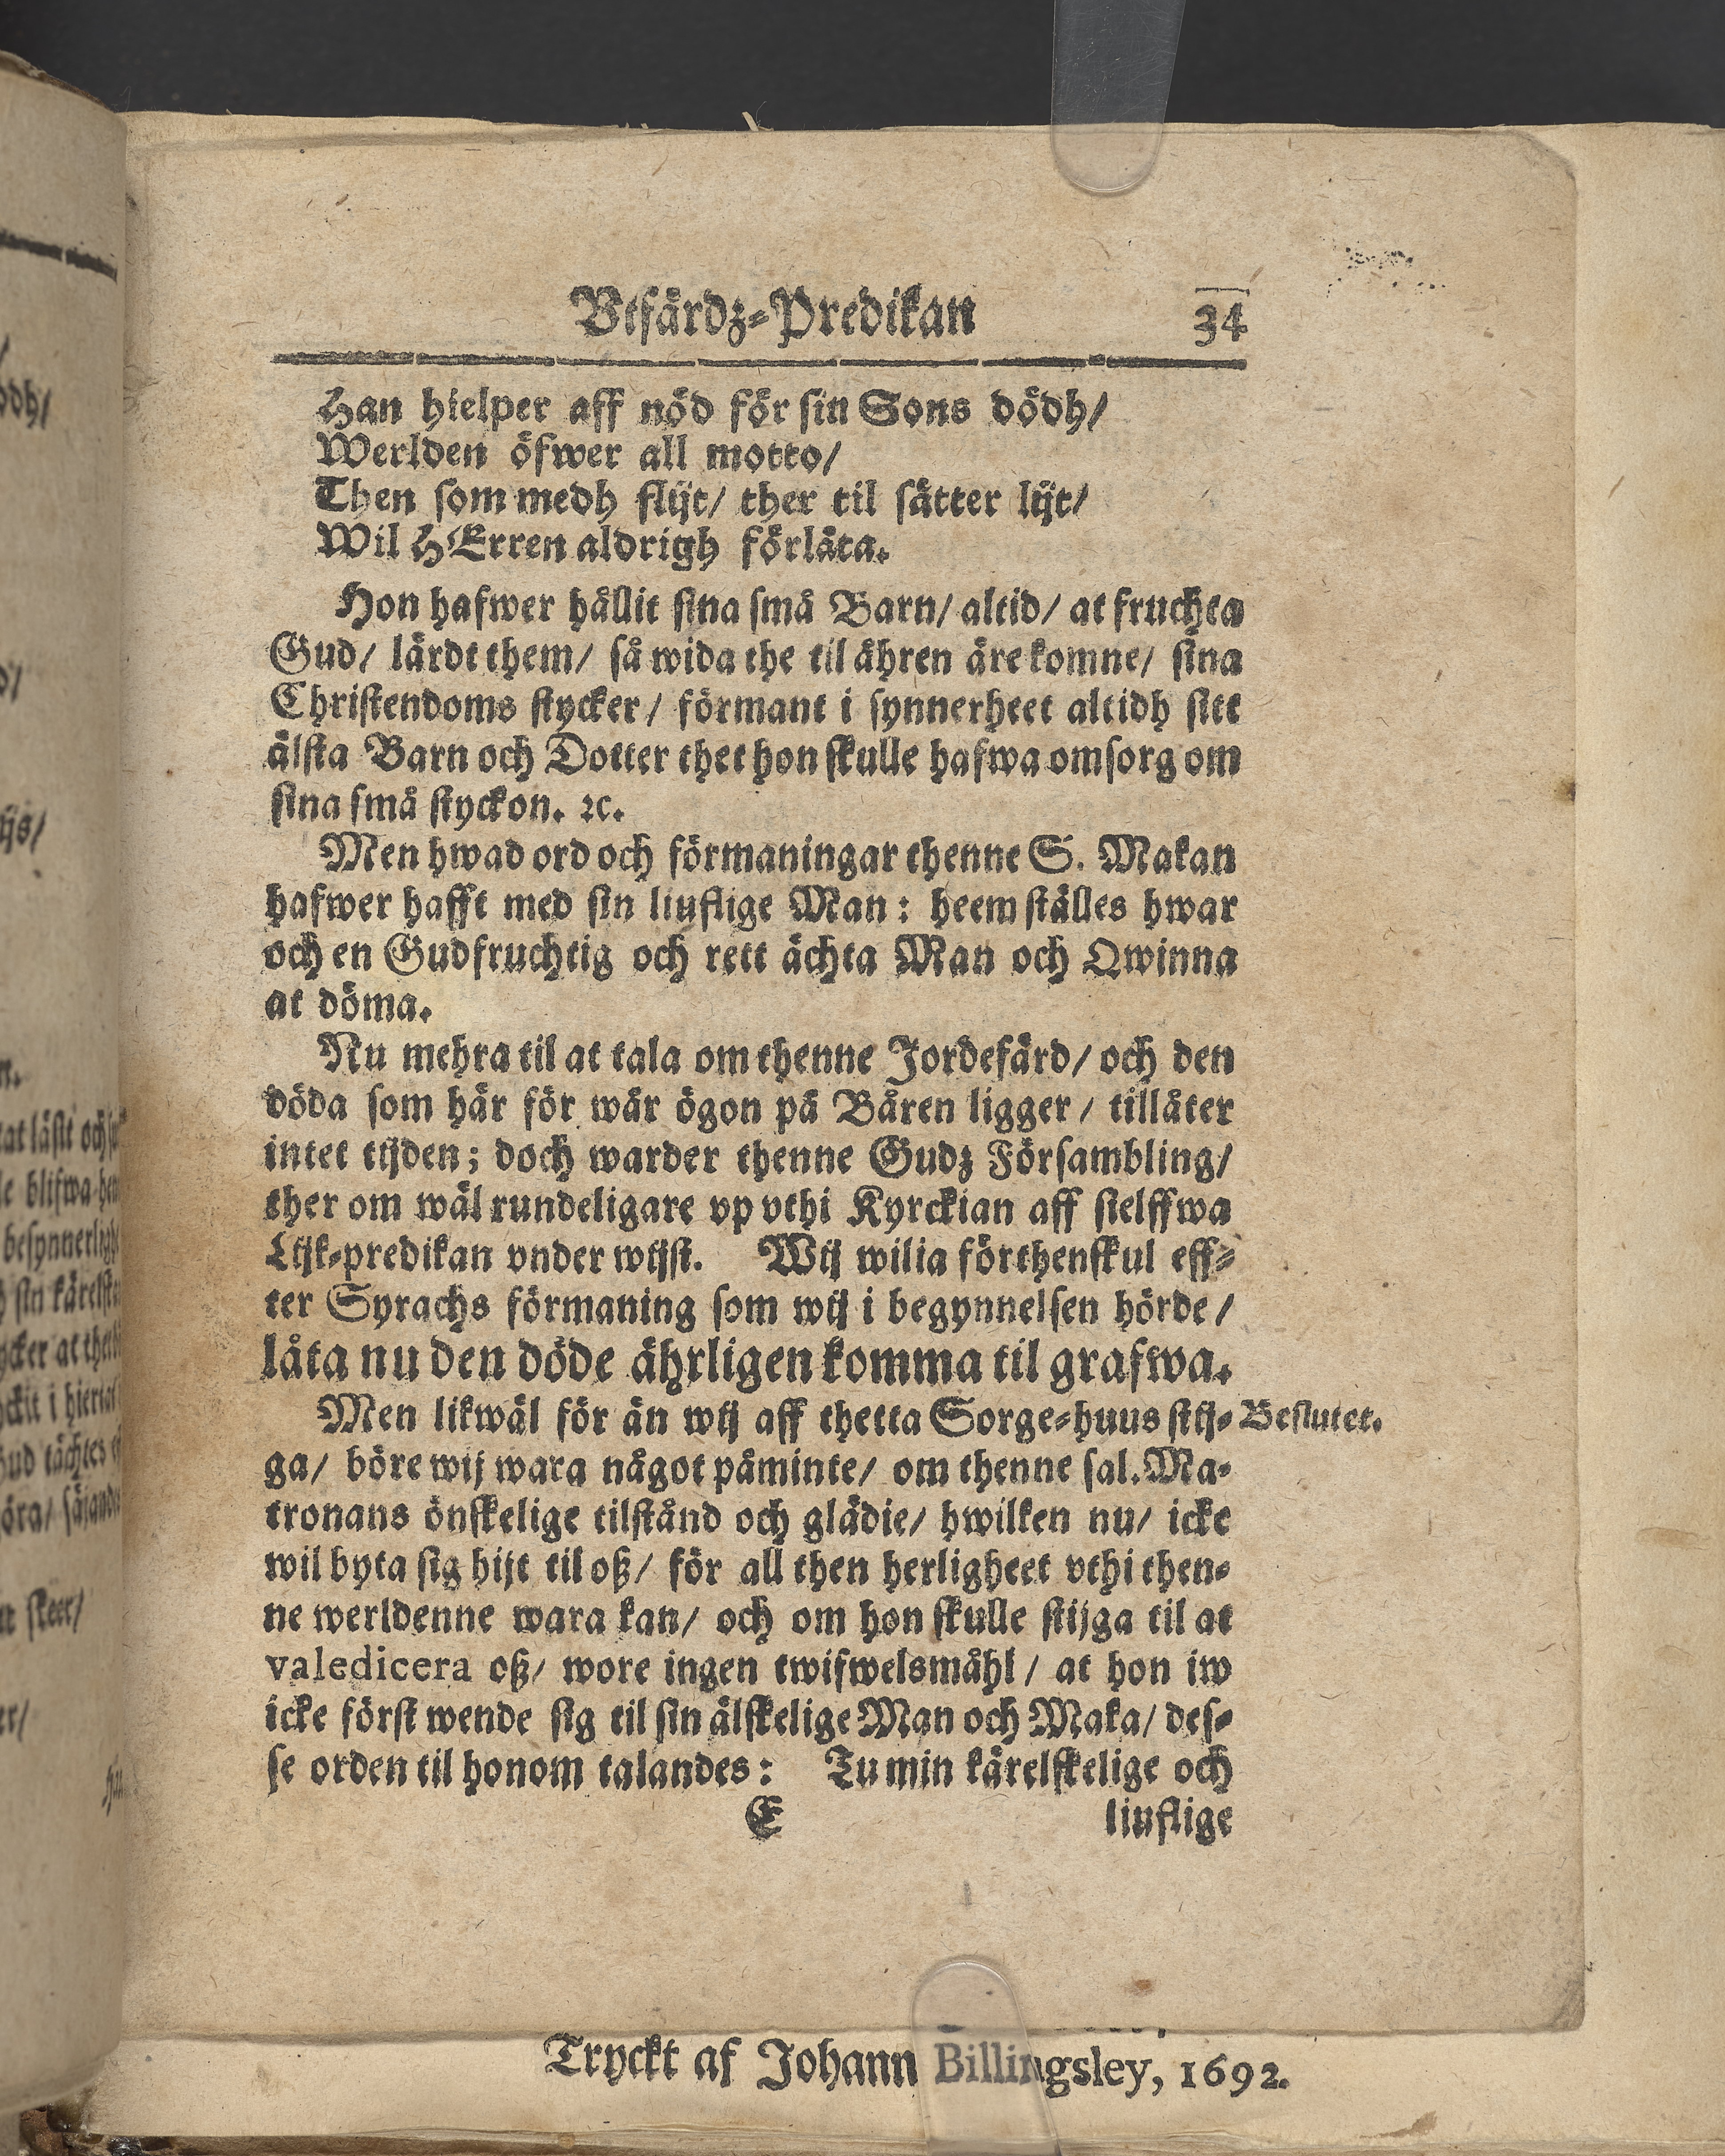 Vtfärdz-Predikan 34
Han hielper aff nöd för sin Sons dödh/
Werlden öfwer all motto/
Then som medh flijt/ ther til sätter lijt/
Wil HErren aldrigh förlåta.
Hon hafwer hållit sina små Barn/ altid/ at fruchta
Gud/ lärdt them/ så wida the til åhren äre komne/ sina
Christendoms stycker/ förmant i synnerheet altidh sitt
älsta Barn och Dotter thet hon skulle hafwa omsorg om
sina små styckon. ꝛc.
Men hwad ord och förmaningar thenne S. Makan
hafwer hafft med sin liuflige Man: heemställes hwar
och en Gudfruchtig och rett ächta Man och Qwinna
at döma.
Nu mehra til at tala om thenne Jordefärd/ och den
döda som här för wår ögon på Båren ligger/ tillåter
intet tijden; doch warder thenne Gudz Försambling/
ther om wäl rundeligare vp vthi Kyrckian aff sielffwa
Lijk-predikan vnder wijst. Wij wilia förthenskul eff-
ter Syrachs förmaning som wij i begynnelsen hörde/
låta nu den döde ährligen komma til grafwa.
Men likwäl för än wij aff thetta Sorge-huus stij- Beslutet.
ga/ böre wij wara något påminte/ om thenne sal. Ma-
tronans önskelige tilstånd och glädie/ hwilken nu/ icke
wil byta sig hijt til oß/ för all then herligheet vthi then-
ne werldenne wara kan/ och om hon skulle stijga til at
valedicera oß/ wore ingen twifwelsmåhl/ at hon iw
icke först wende sig til sin älskelige Man och Maka/ des-
se orden til honom talandes: Tu min kärelskelige och
E liuflige
Tryckt af Johann Billingsley, 1692.